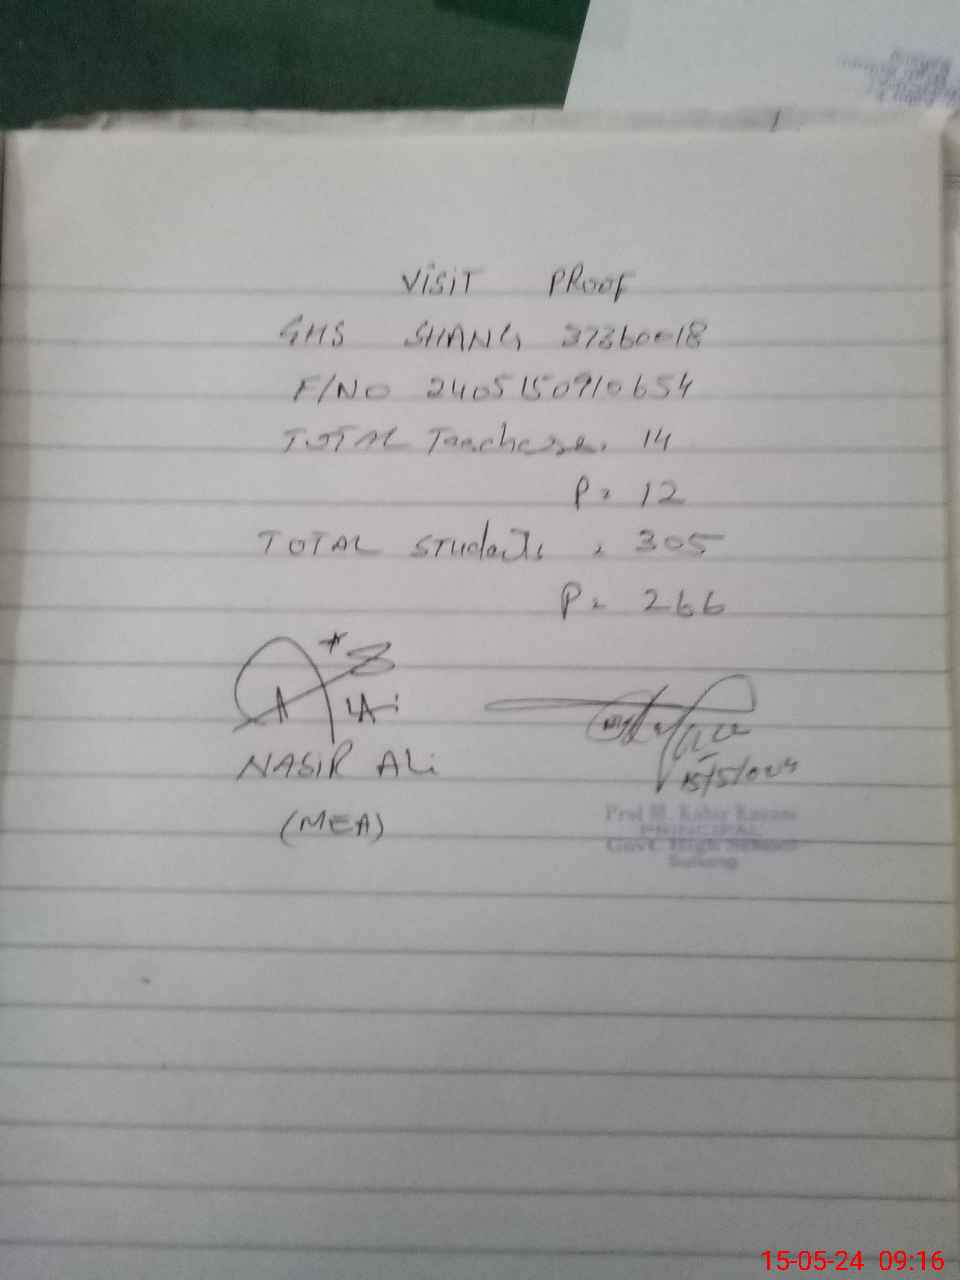 VISIT PROOF
GHS SHANG 37360018
F/NO 2405150910654
TOTAL Teachers. 14
P= 12
TOTAL Students = 305
P= 266
NASIR ALi
(MEA)
15/5/024
Prof M. Kabir
PRINCIPAL
Govt. High School
15-05-24 09:16